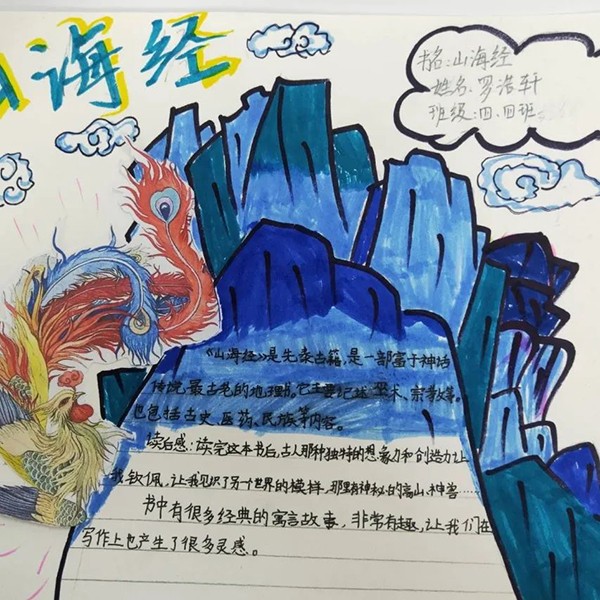 山海经
书名:山海经
姓名:罗浩轩
班级:四.四班
《山海经》是先秦古籍,是一部富于神话
传说最古老的地理书。它主要记述巫术、宗教等。
也包括古史、医药、民族等内容。
读后感:读完这本书后,古人那种独特的想象力和创造力让
我钦佩,让我见识了另一个世界的模样,那里有神秘的高山、神兽……
书中有很多经典的寓言故事,非常有趣,让我们在
写作上也产生了很多灵感。